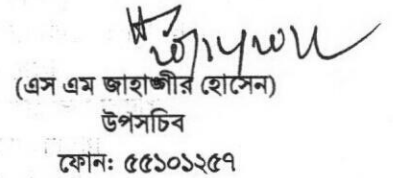 (এস এম জাহাঙ্গীর হোসেন)
উপসচিব
ফোন: ৫৫১০১২৫৭